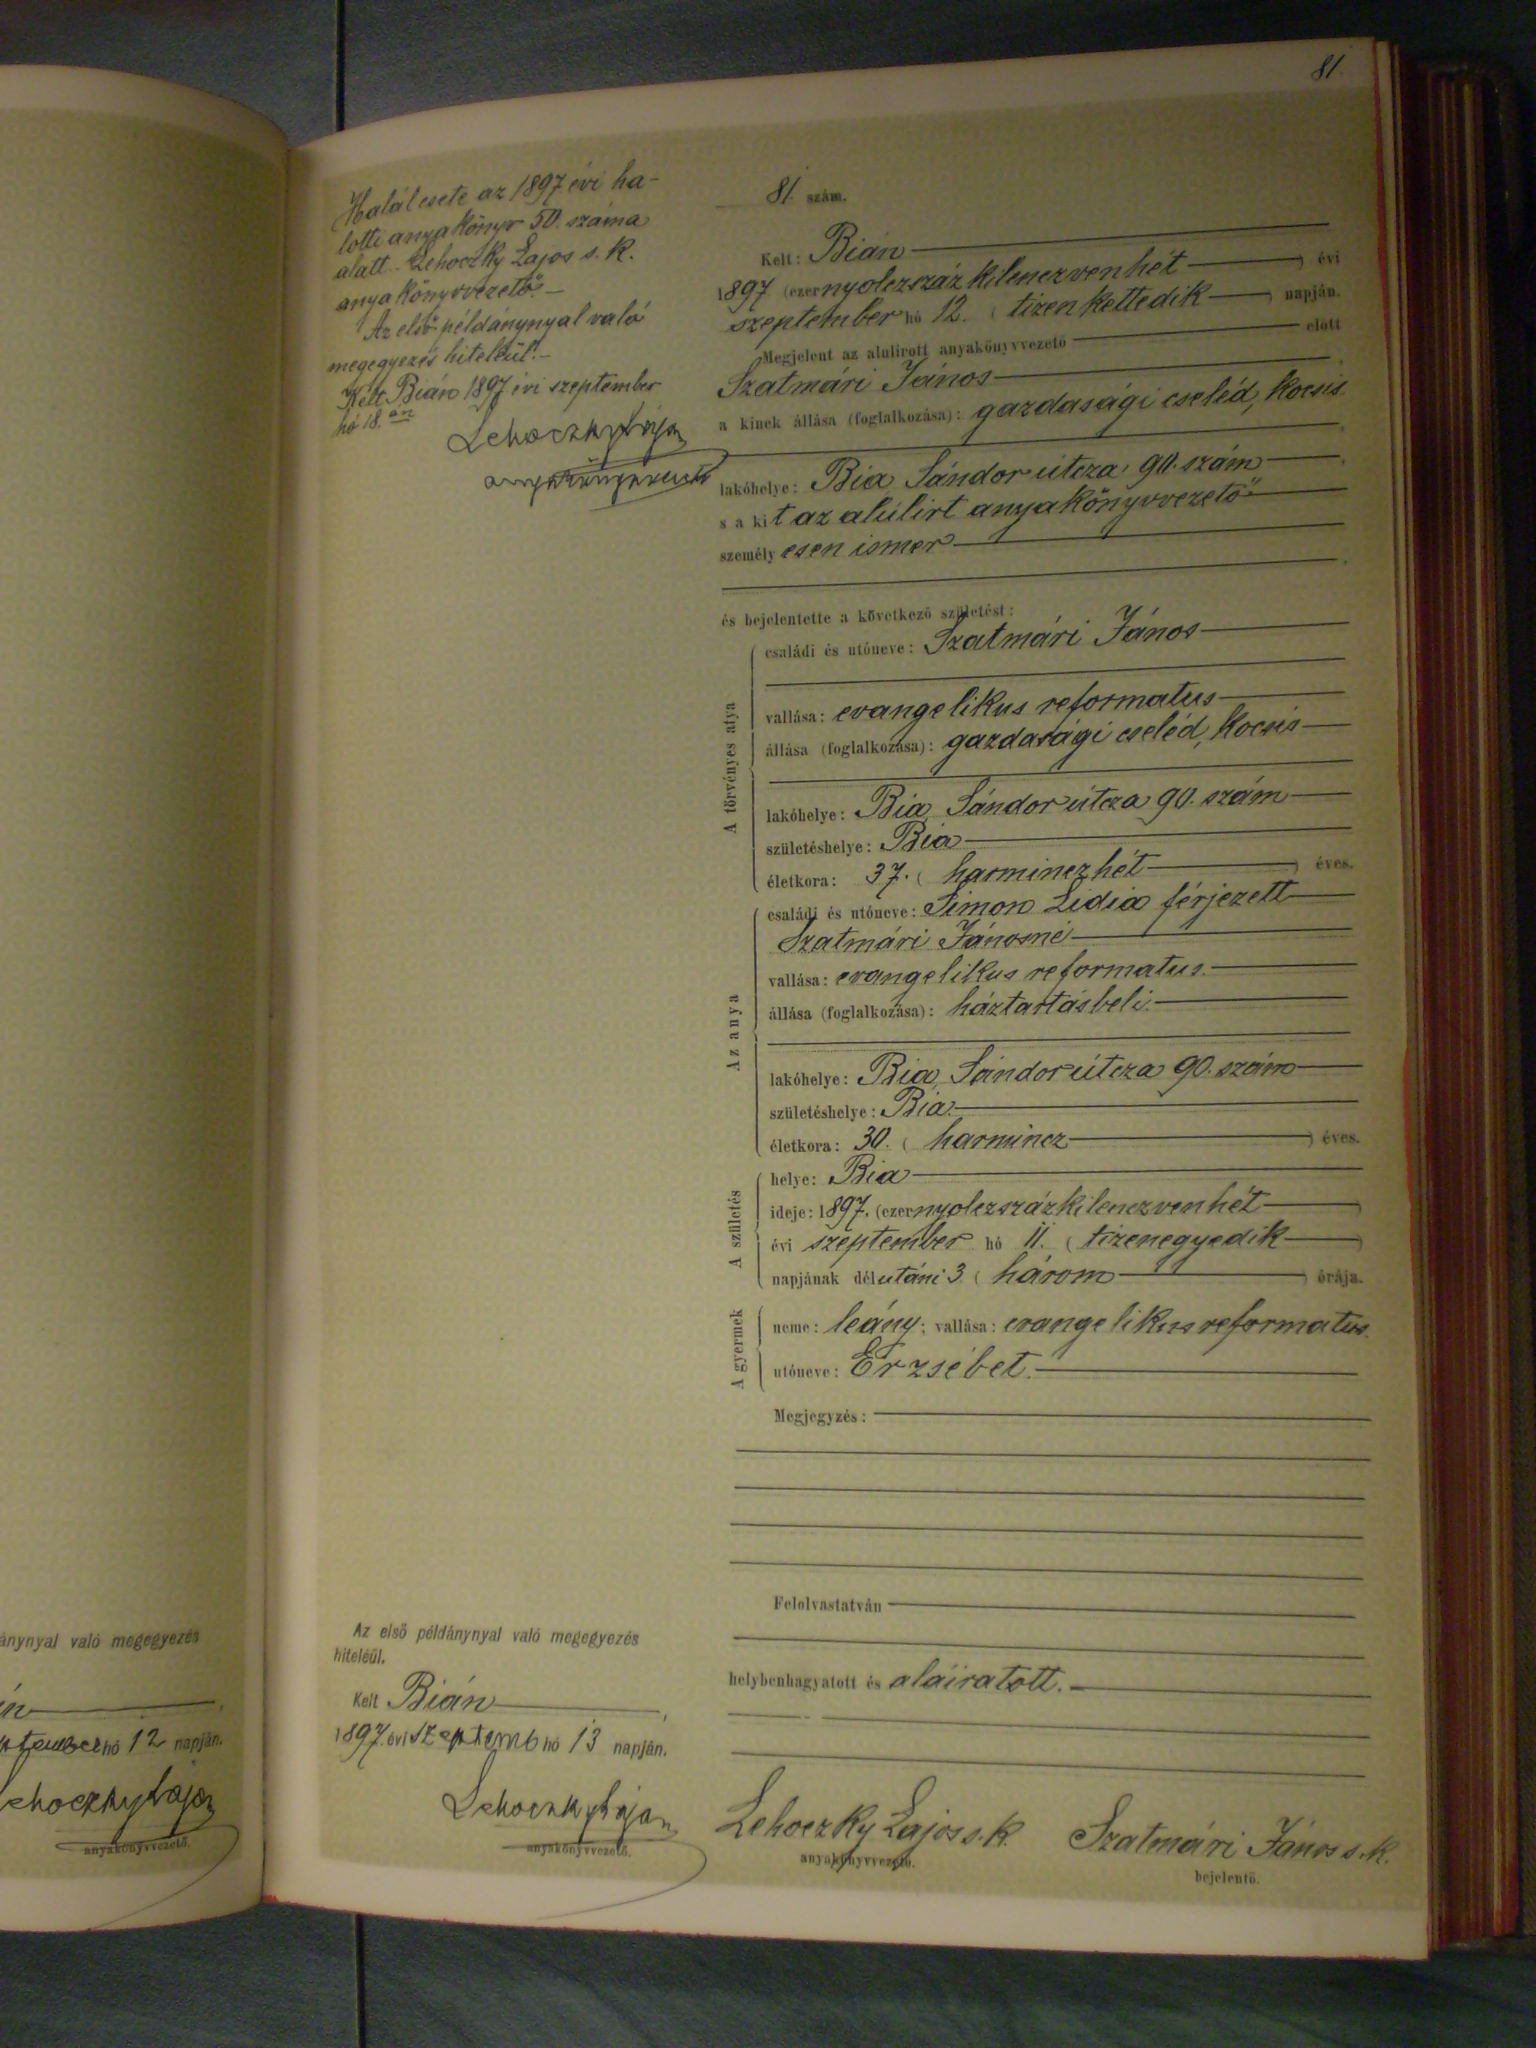 81.
Halálesete az 1897 évi ha-
lotti anyakönyv 50. száma
alatt. Lehoczky Lajos s. k.
anyakönyvvezető. —
Az első példánynyal való
megegyezés hiteléül. —
Kelt Bián 1897 évi szeptember
hó 18.án
Lehoczky Lajos
anyakönyvvezető
81. szám.
Kelt: Bián
1897 (ezernyolczszáz kilenczvenhét ) évi
szeptember hó 12. ( tizenkettedik ) napján.
Megjelent az alulirott anyakönyvvezető előtt
Szatmári János
a kinek állása (foglalkozása): gazdasági cseléd, kocsis
lakóhelye: Bia Sándor útcza 90. szám
s a kit az alúlirt anyakönyvvezető
személyesen ismer
és bejelentette a következő születést:
A törvényes atya
családi és utóneve: Szatmári János
vallása: evangelikus reformatus
állása (foglalkozása): gazdasági cseléd, kocsis
lakóhelye: Bia, Sándor útcza 90. szám
születéshelye: Bia
életkora: 37. ( harminczhét ) éves.
Az anya
családi és utóneve: Simon Lidia férjezett
Szatmári Jánosné
vallása: evangelikus reformatus.
állása (foglalkozása): háztartásbeli.
lakóhelye: Bia, Sándor útcza 90. szám
születéshelye: Bia.
életkora: 30. ( harmincz ) éves.
A születés
helye: Bia
ideje: 1897. (ezernyolczszázkilenczvenhét )
évi szeptember hó 11. ( tizenegyedik )
napjának délutáni 3. ( három ) órája.
A gyermek
neme: leány; vallása: evangelikus reformatus.
utóneve: Erzsébet.
Megjegyzés:
Felolvastatván
helybenhagyatott és aláiratott.
Az első példánynyal való megegyezés
hiteléül.
Kelt Bián
1897. évi szeptemb hó 13 napján.
Lehoczky Lajos
anyakönyvvezető.
Lehoczky Lajos s. k.
anyakönyvvezető.
Szatmári János s. k.
bejelentő.
ánynyal való megegyezés
án
hó 12 napján.
ehoczky Lajos
anyakönyvvezető.